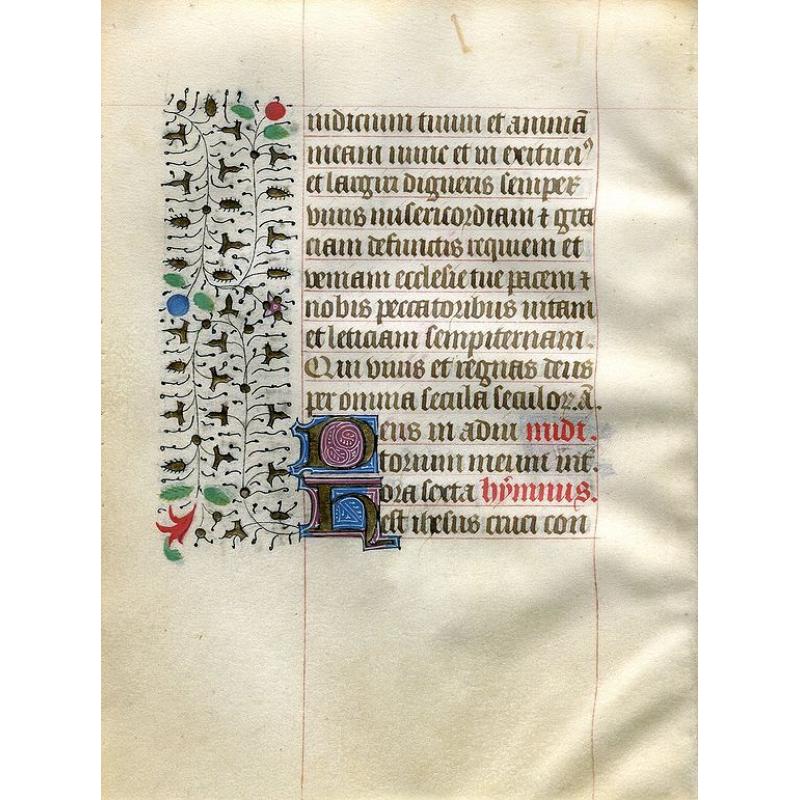 iudicium tuum et animā
meam nunc et in exitu eiꝰ
et largiri digneris semper
viuis misericordiam ⁊ gra
ciam defunctis requiem et
veniam ecclesie tue pacem ⁊
nobis peccatoribus uitam
et leticiam sempiternam.
Qui viuis et regnas deus
per omnia secula seculoꝝ. ā.
Deus in adiu midi.
torium meum int.
Hora sexta hẏmnus.
est ihesus cruci con